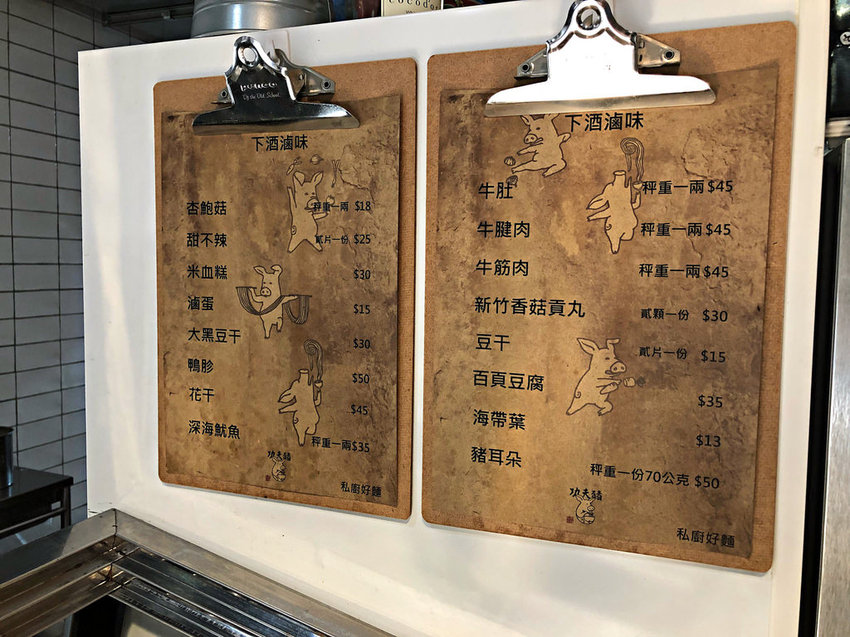 COCOd
Of the Old School
下酒滷味
杏鮑菇 秤重一兩 $18
甜不辣 貳片一份 $25
米血糕 $30
滷蛋 $15
大黑豆干 $30
鴨胗 $50
花干 $45
深海魷魚 秤重一兩$35
功夫豬
私廚好麵
下酒滷味
牛肚 秤重一兩$45
牛腱肉 秤重一兩$45
牛筋肉 秤重一兩$45
新竹香菇貢丸 貳顆一份 $30
豆干 貳片一份 $15
百頁豆腐 $35
海帶葉 $13
豬耳朵 秤重一份70公克 $50
功夫豬
私廚好麵